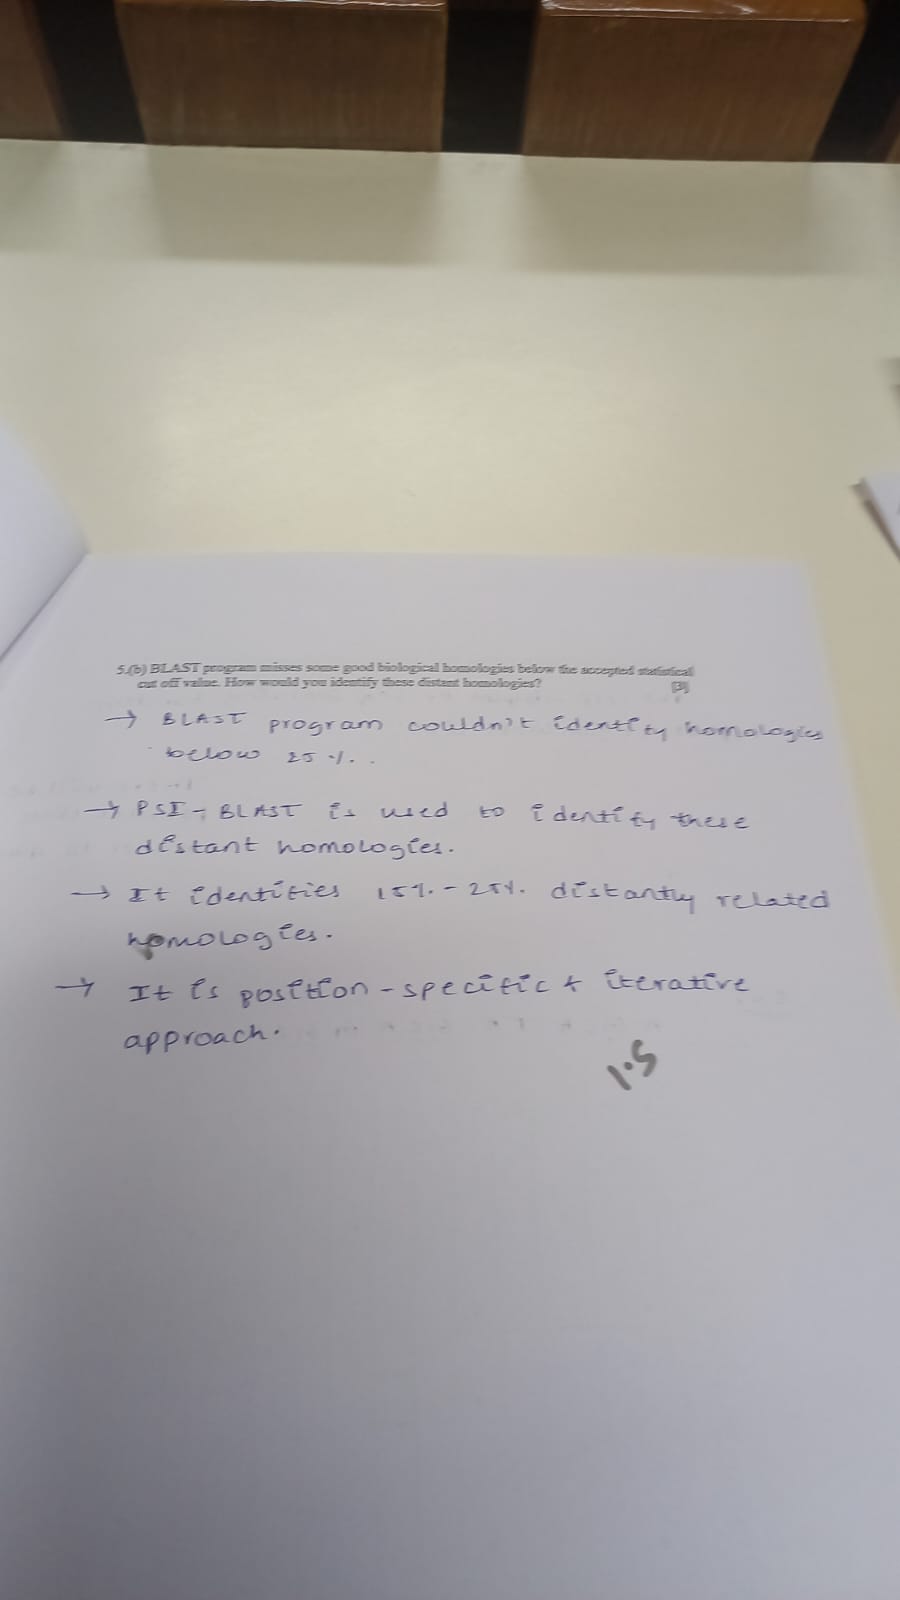 5.(b) BLAST program misses some good biological homologies below the accepted statistical
cut off value. How would you identify these distant homologies? [3]
→ BLAST program couldn't identity homologies
below 25 %.
→ PSI - BLAST is used to identify these
distant homologies.
→ It identifies 15% - 25% distantly related
homologies.
→ It is position - specific & iterative
approach.
1.5